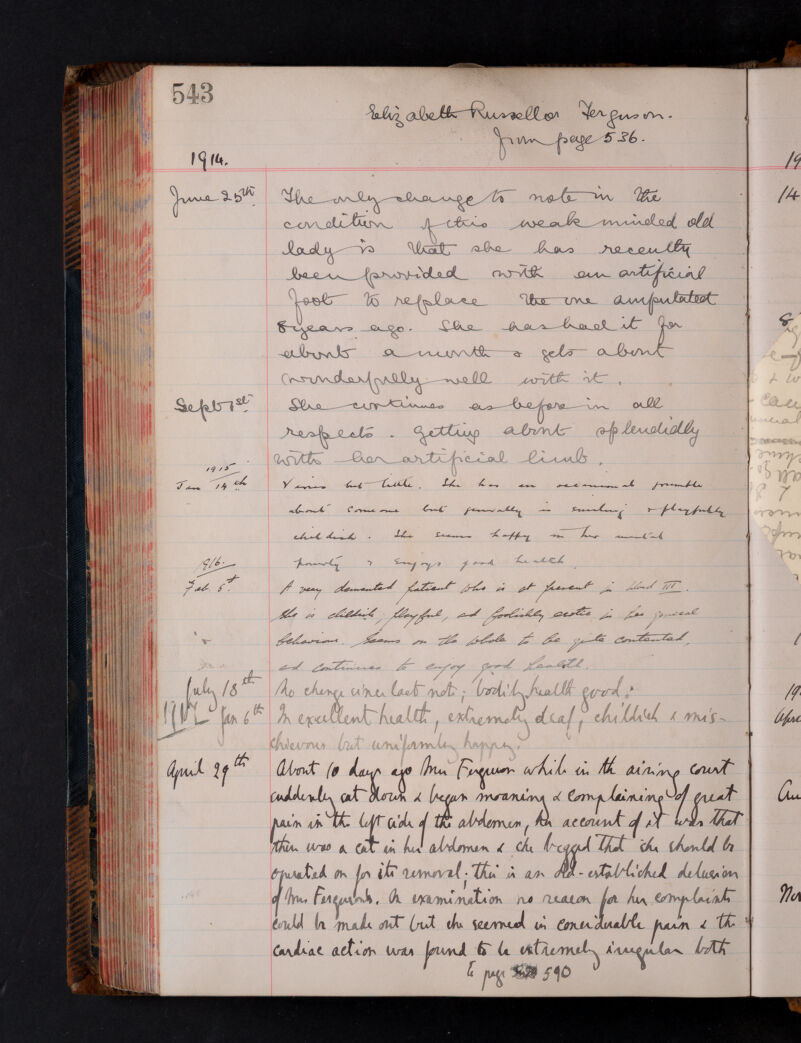 543
Elizabeth Russell or Ferguson.
from page 536.
1914.
June 25th. The only change to note in the
condition of this weak minded old
lady is that she has recently
been provided with an artificial
foot to replace the one amputated
8 years ago. She has had it for
about a month & gets about
wonderfully well with it.
Sept 1st. She continues as before in all
respects. Getting about splendidly
with her artificial limb.
1915
Jan 14th Varies but little. She has an occasional grumble
about someone but generally is smiling & playfully
childish. She seems happy in her mental
poverty & enjoys good health.
1916.
Feb. 5th. A very demented patient who is at present in Ward III.
She is childish, playful, and foolishly erotic in her general
behaviour. Seems on the whole to be quite contented,
and continues to enjoy good health.
July 18th No change since last note; bodily health good.
1917 Jan 6th In excellent health, extremely deaf, childish & mis-
chievous but uniformly happy.
April 29th About 10 days ago Mrs Ferguson while in the airing court
suddenly sat down & began moaning & complaining of great
pain in the left side of the abdomen, her account of it was that
there was a cat in her abdomen & she begged that she should be
operated on for its removal; this is an old-established delusion
of Mrs Ferguson's. On examination no reason for her complaints
could be made out but she seemed in considerable pain & the
cardiac action was found to be extremely irregular both
to page 590